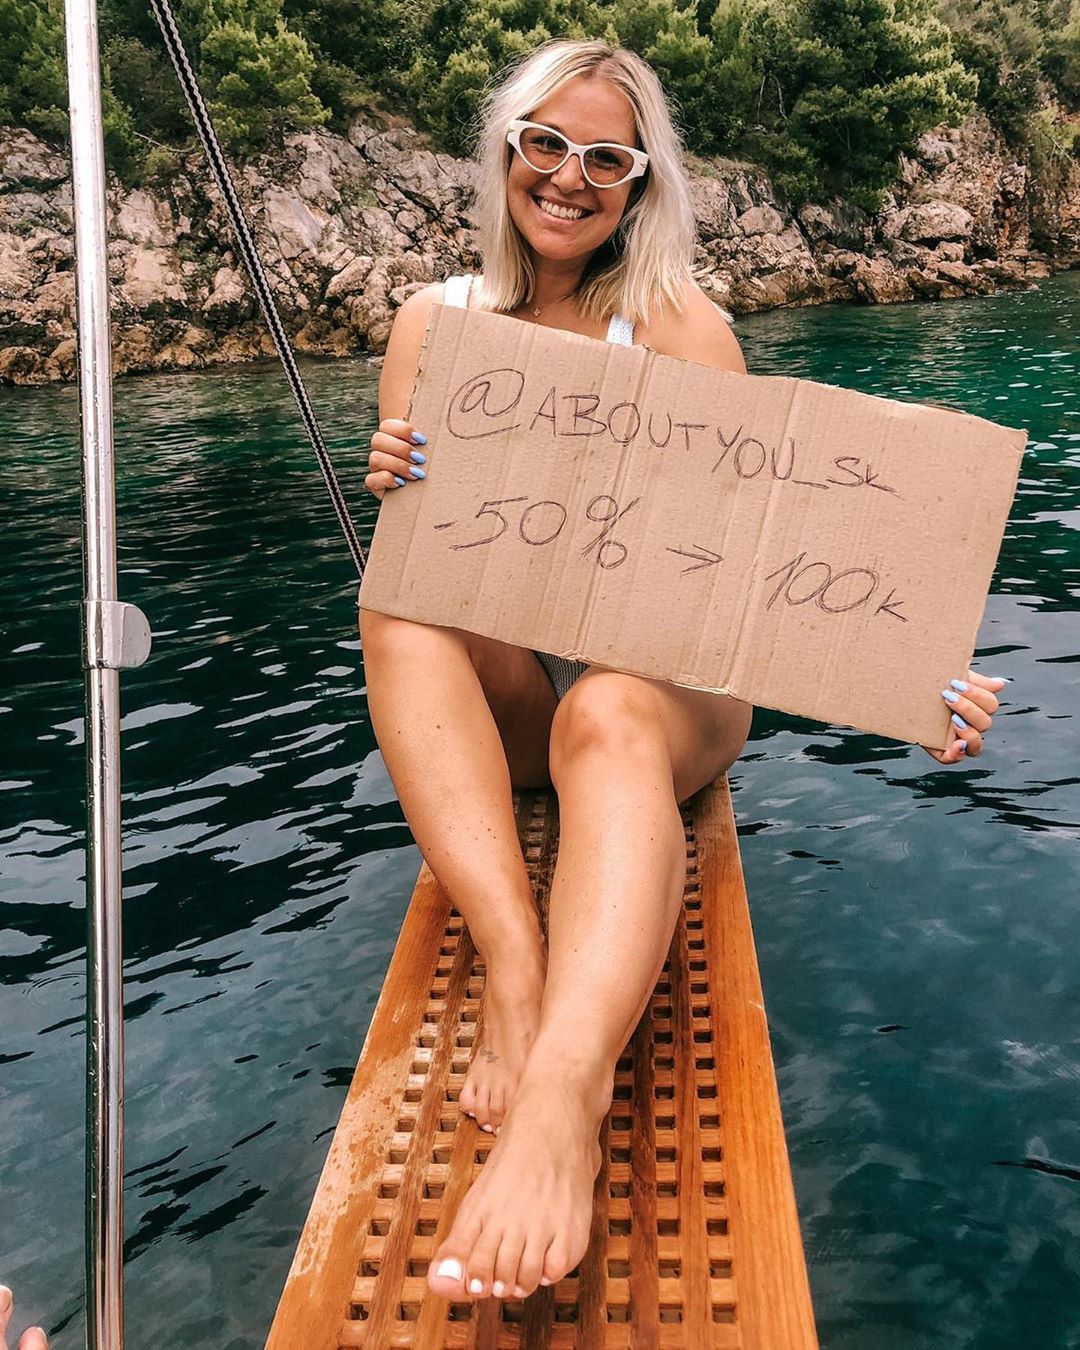 @ABOUTYOU_Sk
-50% → 100k